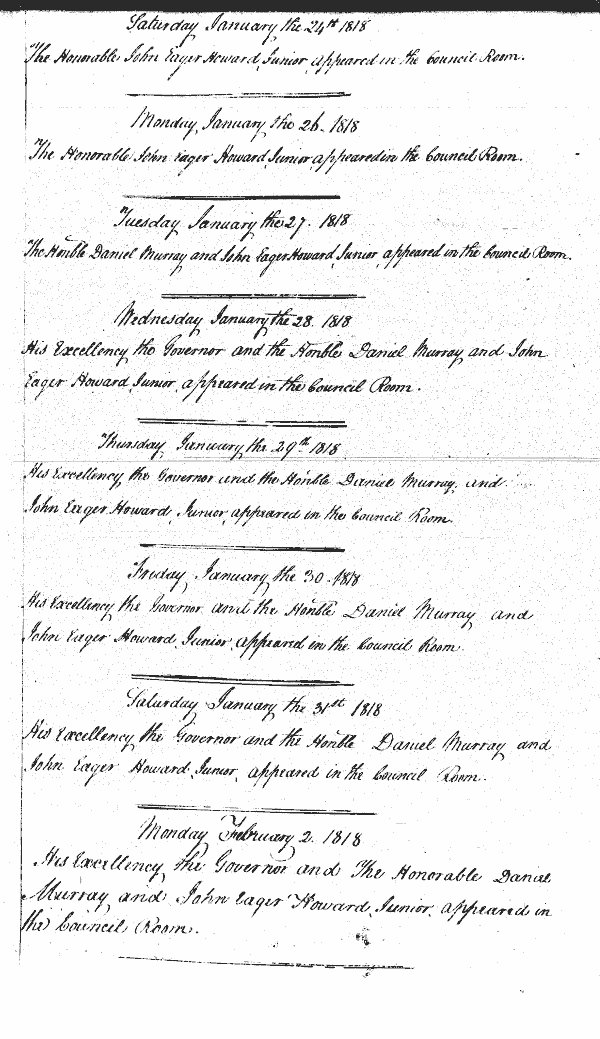 Saturday January the 24st 1818
The Honorable John Eager Howard Junior appeared in the Council Room.
Monday January the 26. 1818
The Honorable John Eager Howard Junior appeared in the Council Room.
Tuesday January the 27. 1818
The Honble Daniel Murray and John Eager Howard Junior appeared in the Council Room.
Wednesday January the 28. 1818
His Excellency the Governor and the Honble Daniel Murray and John
Eager Howard Junior appeared in the Council Room.
Thursday January the 29th 1818
His Excellency the Governor and the Honble Daniel Murray and
John Eager Howard Junior appeared in the Council Room.
Friday January the 30. 1818
His Excellency the Governor and the Honble Daniel Murray and
John Eager Howard Junior appeared in the Council Room.
Saturday January the 31st 1818
His Excellency the Governor and the Honble Daniel Murray and
John Eager Howard Junior appeared in the Council Room.
Monday February 2. 1818
His Excellency the Governor and The Honorable Daniel
Murray and John Eager Howard Junior appeared in
the Council Room.